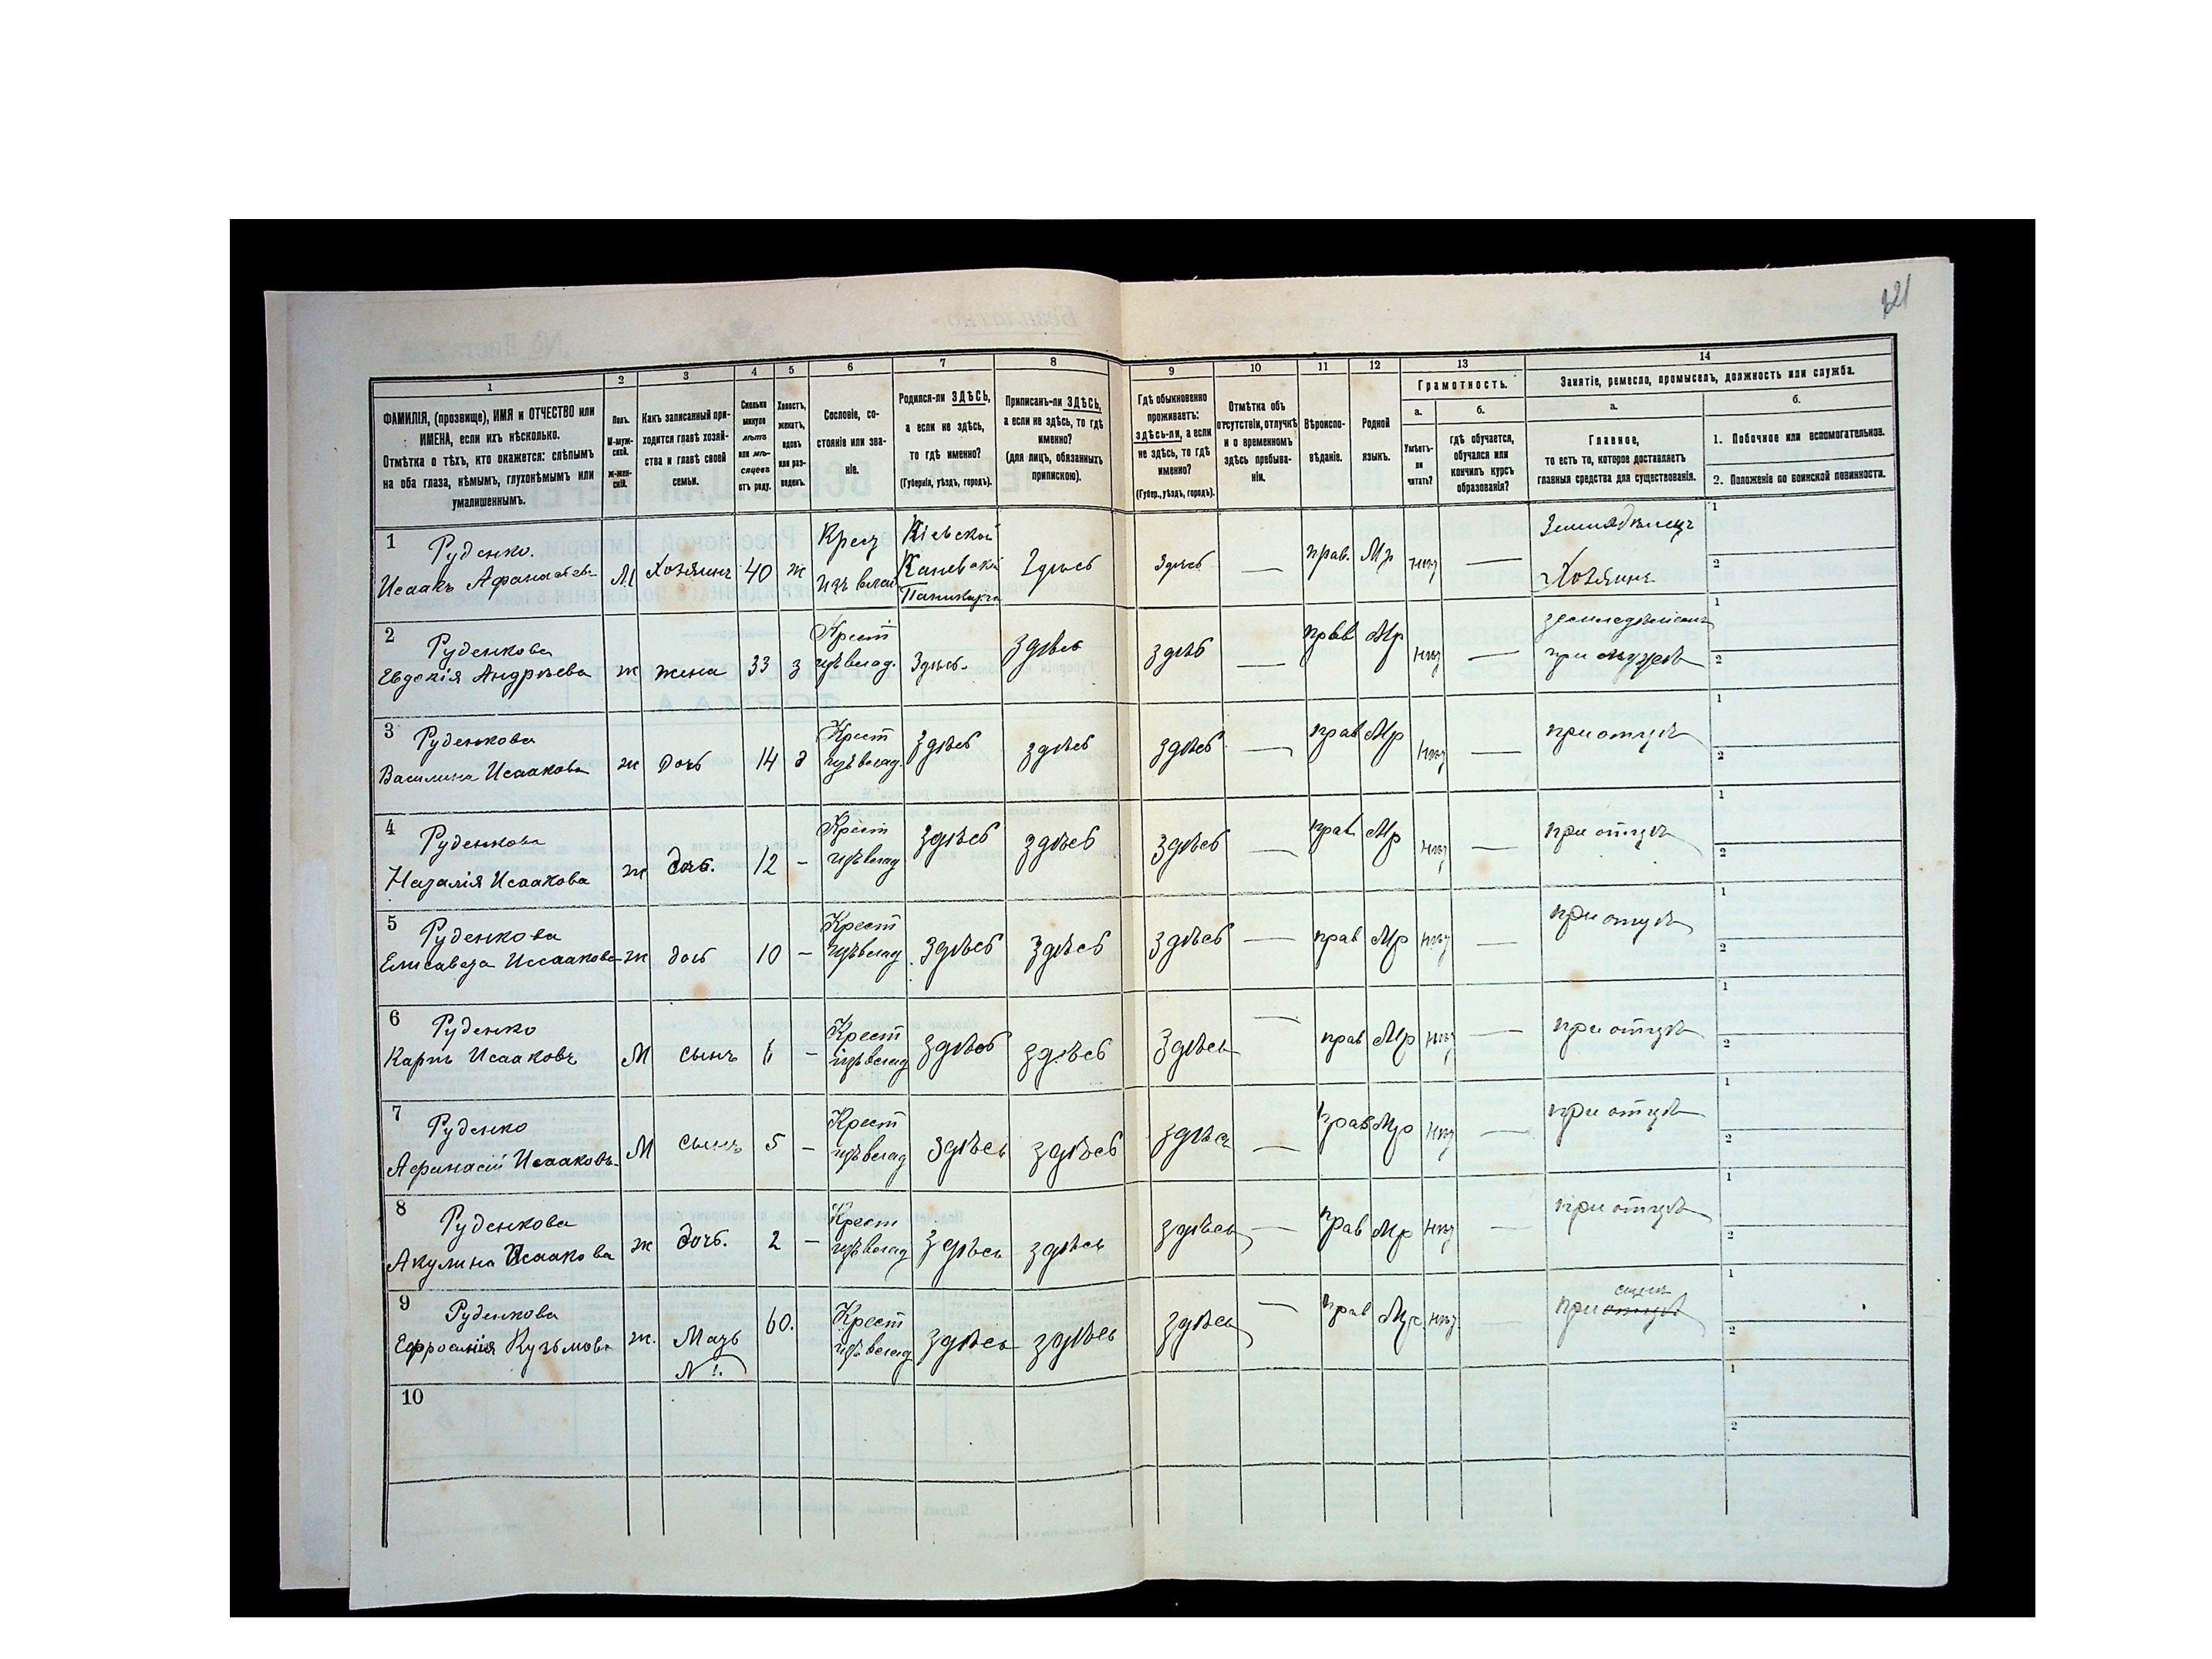 121
1 2 3 4 5 6 7 8 9 10 11 12 13 14
ФАМИЛІЯ, (прозвище), ИМЯ и ОТЧЕСТВО или
ИМЕНА, если ихъ нѣсколько.
Отмѣтка о тѣхъ, кто окажется: слѣпымъ
на оба глаза, нѣмымъ, глухонѣмымъ или
умалишеннымъ.
Полъ.
М-муж-
ской.
ж-жен-
скій.
Какъ записанный при-
ходится главѣ хозяй-
ства и главѣ своей
семьи.
Сколько
минуло
лѣтъ
или мѣ-
сяцевъ
отъ роду.
Холостъ,
женатъ,
вдовъ
или раз-
веденъ.
Сословіе, со-
стояніе или зва-
ніе.
Родился-ли ЗДѢСЬ,
а если не здѣсь,
то гдѣ именно?
(Губернія, уѣздъ, городъ).
Приписанъ-ли ЗДѢСЬ,
а если не здѣсь, то гдѣ
именно?
(для лицъ, обязанныхъ
припискою).
Гдѣ обыкновенно
проживаетъ:
здѣсь-ли, а если
не здѣсь, то гдѣ
именно?
(Губер., уѣздъ, городъ).
Отмѣтка объ
отсутствіи, отлучкѣ
и о временномъ
здѣсь пребыва-
ніи.
Вѣроиспо-
вѣданіе.
Родной
языкъ.
Грамотность.
а.
Умѣетъ-
ли
читать?
б.
гдѣ обучается,
обучался или
кончилъ курсъ
образованія?
Занятіе, ремесло, промыселъ, должность или служба.
а.
Главное,
то есть то, которое доставляетъ
главныя средства для существованія.
б.
1. Побочное или вспомогательное.
2. Положеніе по воинской повинности.
1 Руденко.
Исаакъ Афанасьев
М Хозяинъ 40 ж
Крест
изъ влад
Кіевской
Каневскій
Здѣсь здѣсь — прав. Мр нѣт —
Земледѣлецъ
Хозяинъ
1
2
2 Руденкова
Евдокія Андрѣева
ж жена 33 з
Крест
изъ влад.
Здѣсь. здѣсь здѣсь — прав Мр нѣт —
при мужѣ
1
2
3 Руденкова
Василина Исаакова
ж дочь 14 д
Крест
изъ влад.
здѣсь здѣсь здѣсь — прав Мр нѣт —
при отцѣ
1
2
4 Руденкова
Наталія Исаакова
ж дочь. 12 —
Крест
изъ влад
здѣсь здѣсь здѣсь — прав Мр нѣт —
при отцѣ
1
2
5 Руденкова
Елисавета Иссаакова
ж дочь 10 —
Крест
изъ влад
здѣсь здѣсь здѣсь — прав Мр нѣт —
при отцѣ
1
2
6 Руденко
Карпъ Исааковъ
М сынъ 6 —
Крест
изъ влад
здѣсь здѣсь здѣсь — прав Мр нѣт —
при отцѣ
1
2
7 Руденко
Афанасій Исааковъ
М сынъ 5 —
Крест
изъ влад
здѣсь здѣсь здѣсь — прав Мр нѣт —
при отцѣ
1
2
8 Руденкова
Акулина Исаакова
ж дочь. 2 —
Крест
изъ влад
здѣсь здѣсь здѣсь — прав Мр нѣт —
при отцѣ
1
2
9 Руденкова
Ефросинія Кузьмова
ж. Мать 60.
№ 1.
Крест
изъ влад
здѣсь здѣсь здѣсь — прав Мр. нѣт
сынѣ
при отцѣ
1
2
10
1
2